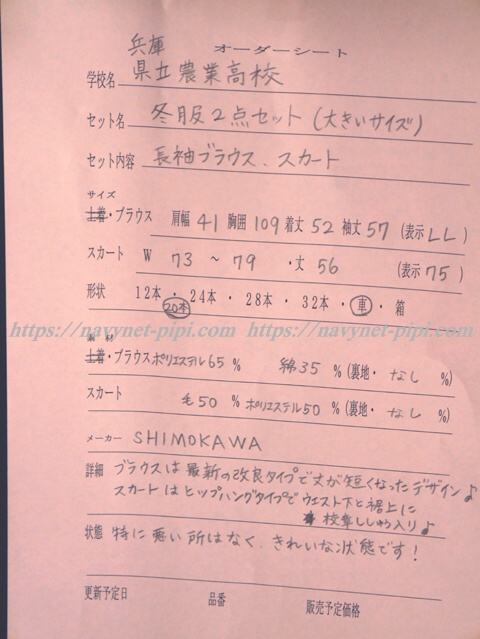 オーダーシート
兵庫
学校名 県立農業高校
セット名 冬服2点セット(大きいサイズ)
セット内容 長袖ブラウス、スカート
サイズ
上着・ブラウス 肩幅 41 胸囲 109 着丈 52 袖丈 57 (表示 LL)
スカート W 73 ～ 79 ・丈 56 (表示 75)
形状 12本 ・ 24本 ・ 28本 ・ 32本 ・ 車 ・ 箱
20本
https://navynet-pipi.com https://navynet-pipi.com
素材
上着・ブラウス ポリエステル65 % 綿35 % (裏地・ なし %)
スカート 毛50 % ポリエステル50 % (裏地・ なし %)
メーカー SHIMOKAWA
詳細 ブラウスは最新の改良タイプで丈が短くなったデザイン♪
スカートはヒップハングタイプでウエスト下と裾上に
校章ししゅう入り♪
状態 特に悪い所はなく、きれいな状態です!
更新予定日 品番 販売予定価格